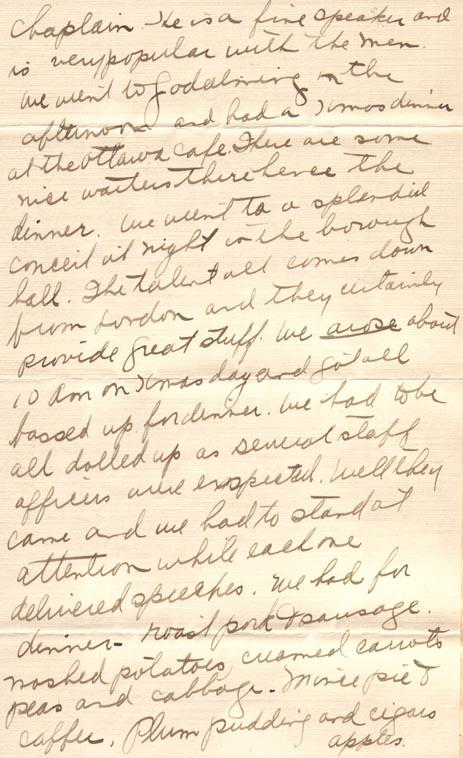 Chaplain. He is a fine speaker and
is very popular with the men.
We went to Godalming in the
afternoon and had a Xmas dinner
at the Ottawa Cafe. There are some
nice waiters there hence the
dinner. We went to a splendid
concert at night in the borough
hall. The talent all comes down
from London and they certainly
provide great stuff. We arose about
10 am on Xmas day and got all
bossed up for dinner. We had to be
all dolled up as several staff
officers were expected. Well they
came and we had to stand at
attention while each one
delivered speeches. We had for
dinner - roast pork & sausage.
mashed potatoes creamed carrots
peas and cabbage. Mince pie &
caffee. Plum pudding and cigars
apples.